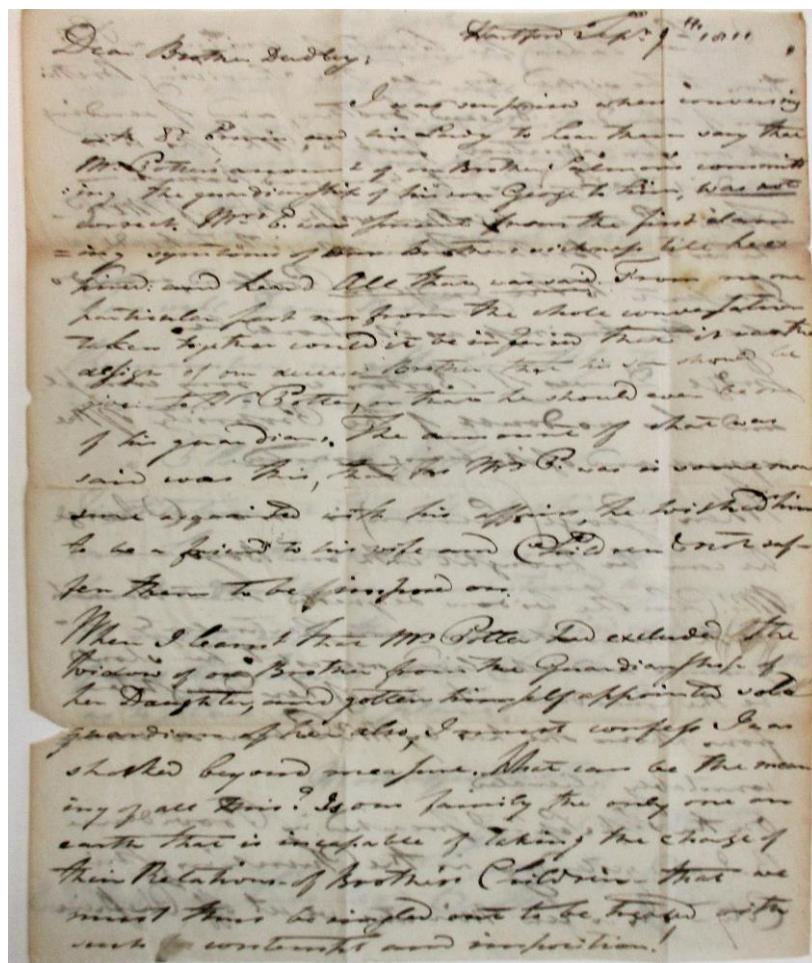 Hartford Sepr. 9th 1811
Dear Brother Dudley,
I was surprised when conversing
with Dr. and his Lady to hear them say that
Mr. Potter's account of our Brother committ
ing the guardianship of his son George to him, was not
correct. Mrs. P. was present from the first alarm
=ing symptoms of our Brothers sickness till he ex
pired: and heard All that was said. From no one
particular part nor from the whole conversation
taken together could it be inferred that it was the
design of our deceased Brother that his son should be
given to Mr. Potter, or that he should even be one
of his guardians. The amount of what was
said was this, that as Mr. P. was in some mea
sure acquainted with his affairs, he wished him
to be a friend to his wife and Children & not suf=
fer them to be imposed on.
When I learnt that Mr. Potter had excluded the
Widow of our Brother from the Guardianship of
her Daughter, and gotten himself appointed sole
guardian of her also, I must confess I was
shocked beyond measure. What can be the mean
ing of all this? Is our family the only one on
earth that is incapable of taking the charge of
their Relations & Brothers Children that we
must thus be singled out to be treated with
such contempt and imposition!